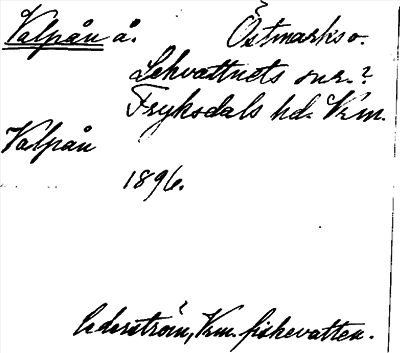 Valpån å. Östmarks o.
Lekvattnets snr.?
Fryksdals hd. Vrm.
Valpån
1896.
Cederström, Vrm. fiskevatten.